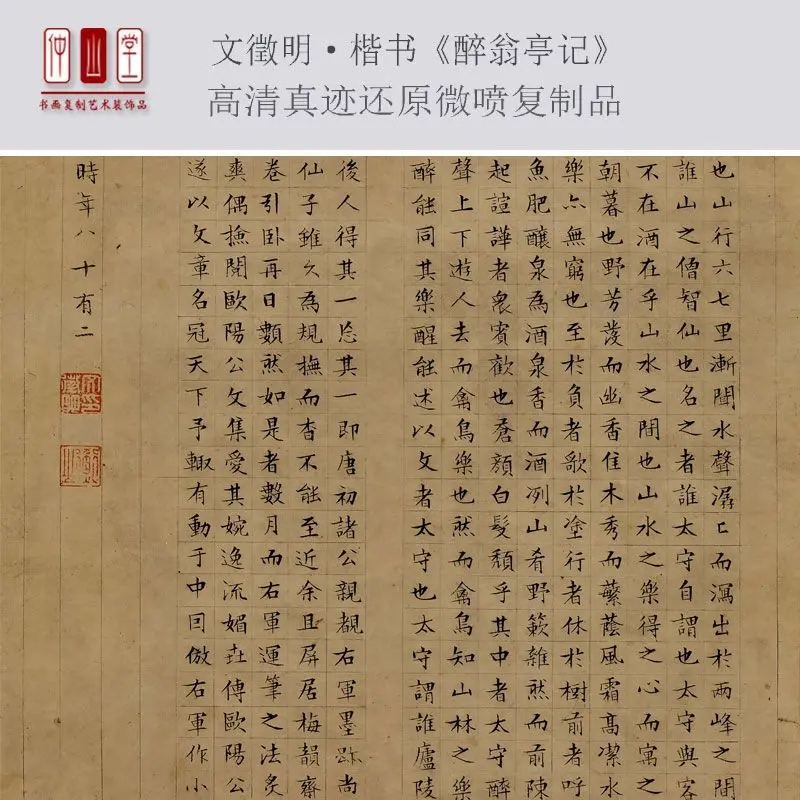 仲山堂
书画复制艺术装饰品
文徵明·楷书《醉翁亭记》
高清真迹还原微喷复制品
也山行六七里漸聞水聲潺〻而瀉出於兩峰之間
誰山之僧智仙也名之者誰太守自謂也太守與客
不在酒在乎山水之間也山水之樂得之心而寓之
朝暮也野芳發而幽香佳木秀而蘩蔭風霜髙潔水
樂亦無窮也至於負者歌於塗行者休於樹前者呼
魚肥釀泉為酒泉香而酒冽山肴野蔌雜然而前陳
起諠譁者衆賓歡也蒼顏白髮頹乎其中者太守醉
聲上下遊人去而禽鳥樂也然而禽鳥知山林之樂
醉能同其樂醒能述以文者太守也太守謂誰廬陵
後人得其一忘其一即唐初諸公親覩右軍墨跡尚
仙子雖久為規撫而杳不能至近余且屏居梅韻齋
卷引卧再日數然如是者數月而右軍運筆之法炙
爽偶撿閱歐陽公文集愛其婉逸流媚傳歐陽公
遂以文章名冠天下予輒有動于中囙倣右軍作小
時年八十有二